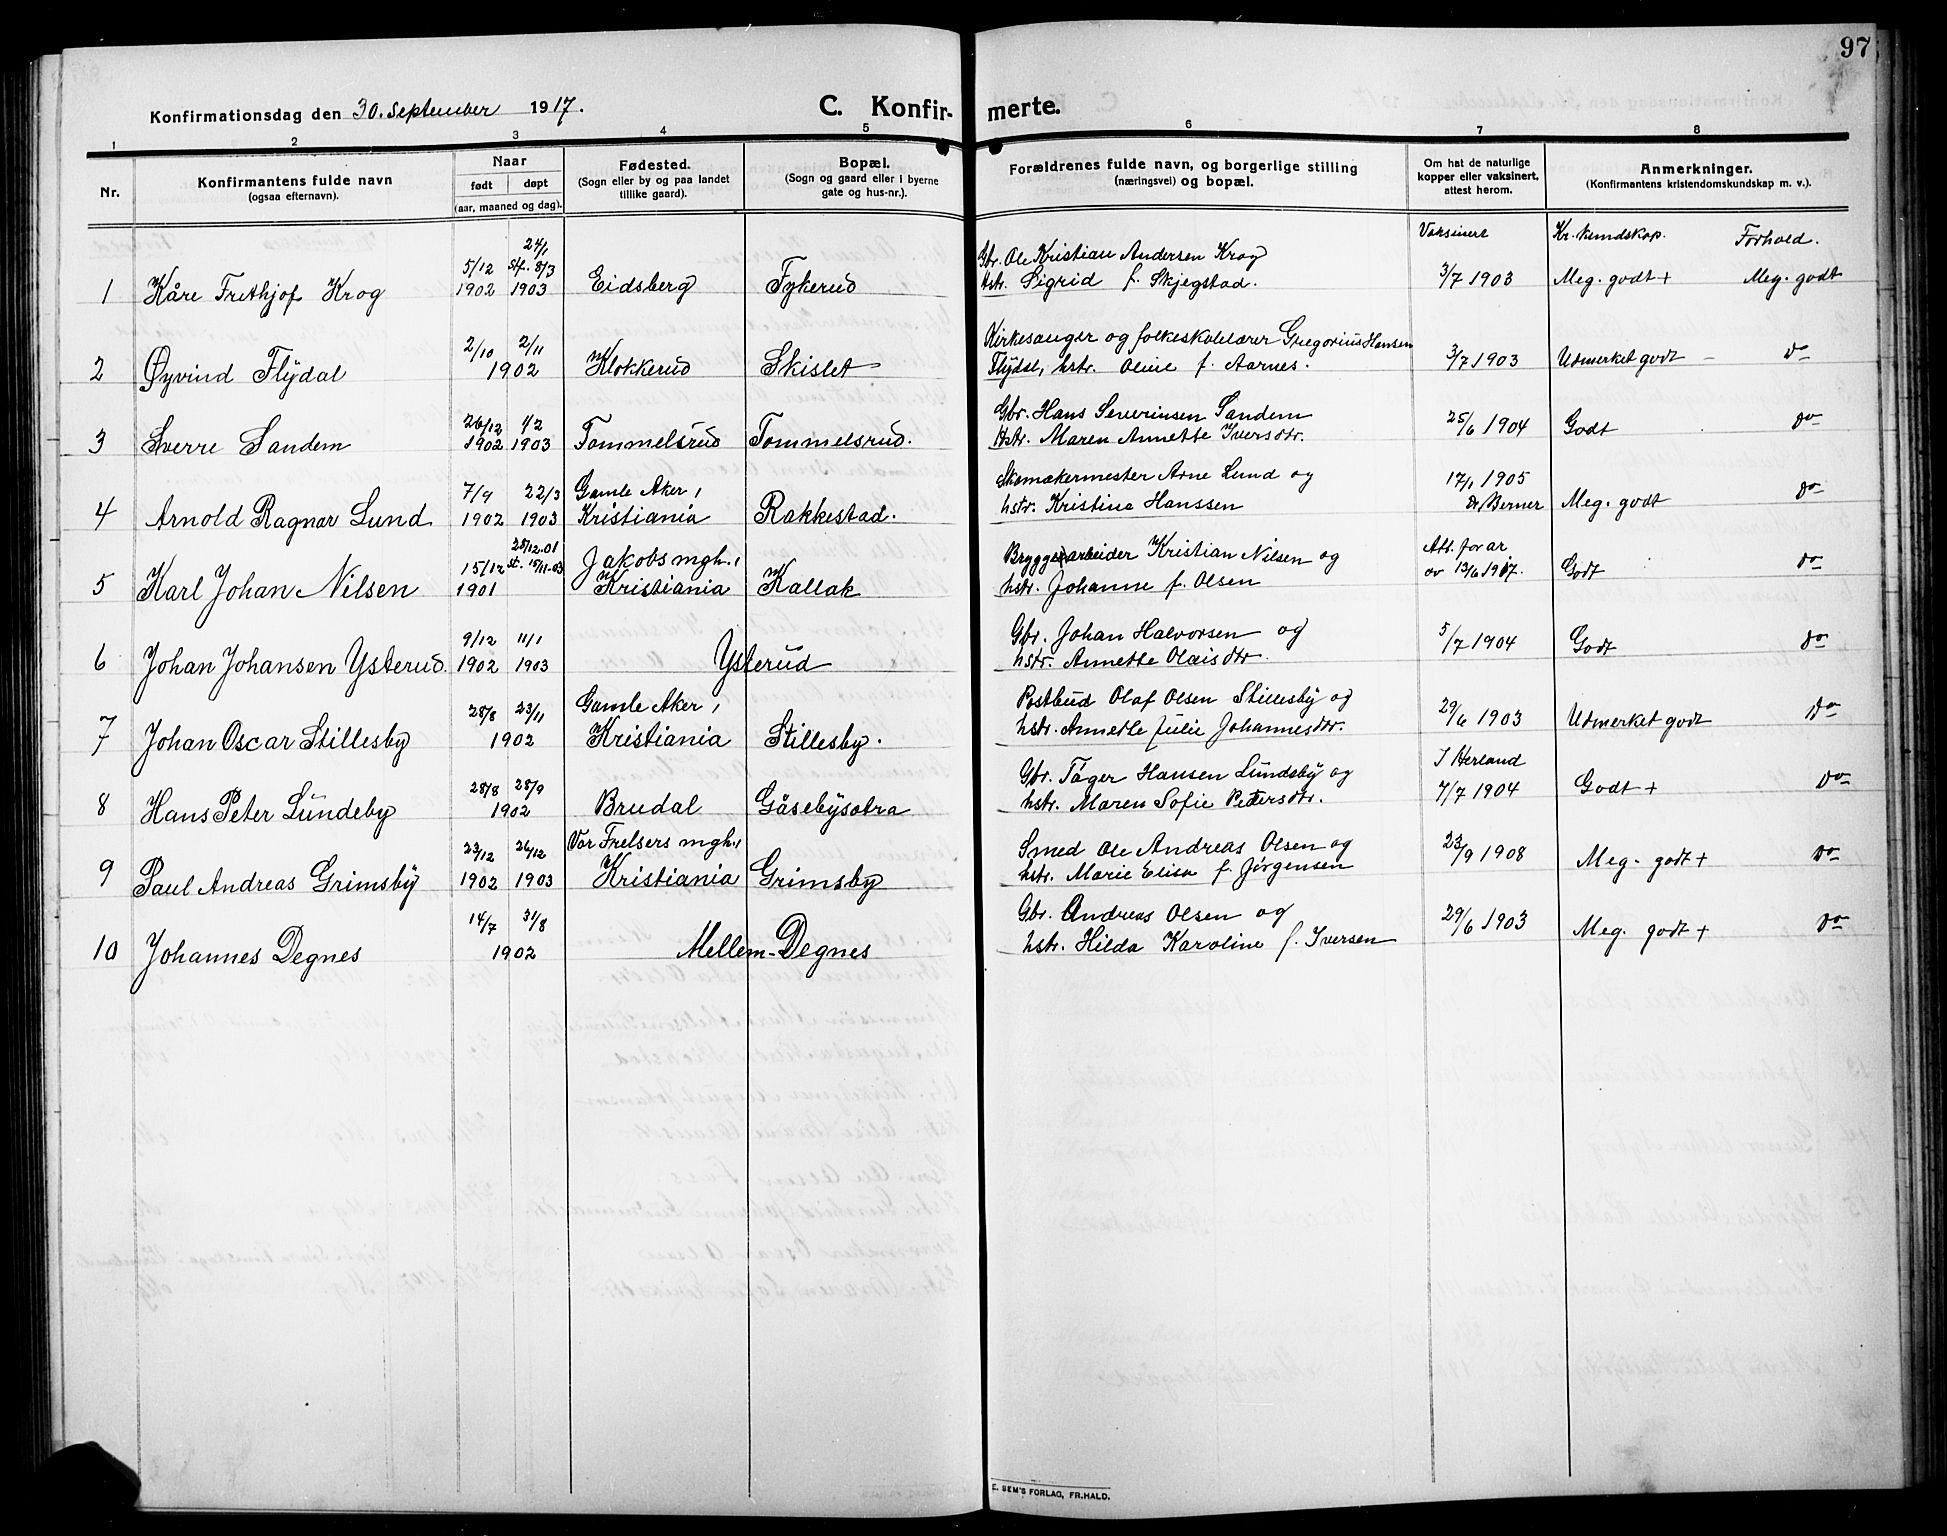 97
Konfirmationsdag den 30. September 1917.
C. Konfirmerte.
1 2 3 4 5 6 7 8
Nr.
Konfirmantens fulde navn
(ogsaa efternavn).
Naar
født døpt
(aar, maaned og dag).
Fødested.
(Sogn eller by og paa landet
tillike gaard).
Bopæl.
(Sogn og gaard eller i byerne
gate og hus-nr.).
Forældrenes fulde navn, og borgerlige stilling
(næringsvei) og bopæl.
Om hat de naturlige
kopper eller vaksinert,
attest herom.
Anmerkninger.
(Konfirmantens kristendomskundskap m. v.).
Vaksinert Kr. kundskap. Forhold.
24/1
5/12 stf. 8/3 Gbr. Ole Kristian Andersen Krog
1 Kåre Frithjof Krog 1902 1903 Eidsberg Fykerud Hstr. Sigrid f. Skjegstad. 3/7 1903 Meg. godt + Meg. godt
2/10 2/11 Kirkesanger og folkeskolelærer Gregorius Hansen
2 Øyvind Flydal 1902 Klokkerud Skislet Flydal, hstr. Oline f. Aarnes. 3/7 1903 Udmerket godt – do
26/12 1/2 Gbr. Hans Severinsen Sandem
3 Sverre Sandem 1902 1903 Tommelsrud Tommelsrud. Hstr. Maren Annette Iversdtr. 25/6 1904 Godt do
7/9 22/3 Gamle Aker, Skomakermester Arne Lund og 17/1 1905
4 Arnold Ragnar Lund 1902 1903 Kristiania Rakkestad. hstr. Kristine Hanssen Dr Berner Meg. godt do
28/12.01
15/12 st. 15/11-03 Jakobs mgh., Bryggeriarbeider Kristian Nilsen og Att. for ar
5 Karl Johan Nilsen 1901 Kristiania Kallak hstr. Johanne f. Olsen av 13/6 1917. Godt do
9/12 11/1 Gbr. Johan Halvorsen og
6 Johan Johansen Ysterud. 1902 1903 Ysterud hstr. Annette Olaisdtr. 5/7 1904 Godt do
28/8 23/11 Gamle Aker, Postbud Olaf Olsen Stillesby og
7 Johan Oscar Stillesby 1902 Kristiania Stillesby. hstr. Annette Julie Johannesdtr. 29/6 1903 Udmerket godt do
28/8 28/9 Gbr. Tøger Hansen Lundeby og I Herland
8 Hans Peter Lundeby 1902 Brudal Gåsebysotra hstr. Maren Sofie Pedersdtr. 7/7 1904 Godt + do
23/12 26/12 Vor Frelsers mgh., Smed Ole Andreas Olsen og
9 Paul Andreas Grimsby 1902 1903 Kristiania Grimsby hstr. Marie Elisa f. Jørgensen 23/9 1908 Meg. godt + do
14/7 31/8 Gbr. Andreas Olsen og
10 Johannes Degnes 1902 Mellem-Degnes hstr. Hilda Karoline f. Iversen 29/6 1903 Meg. godt + do
E. SEM'S FORLAG, FR.HALD.